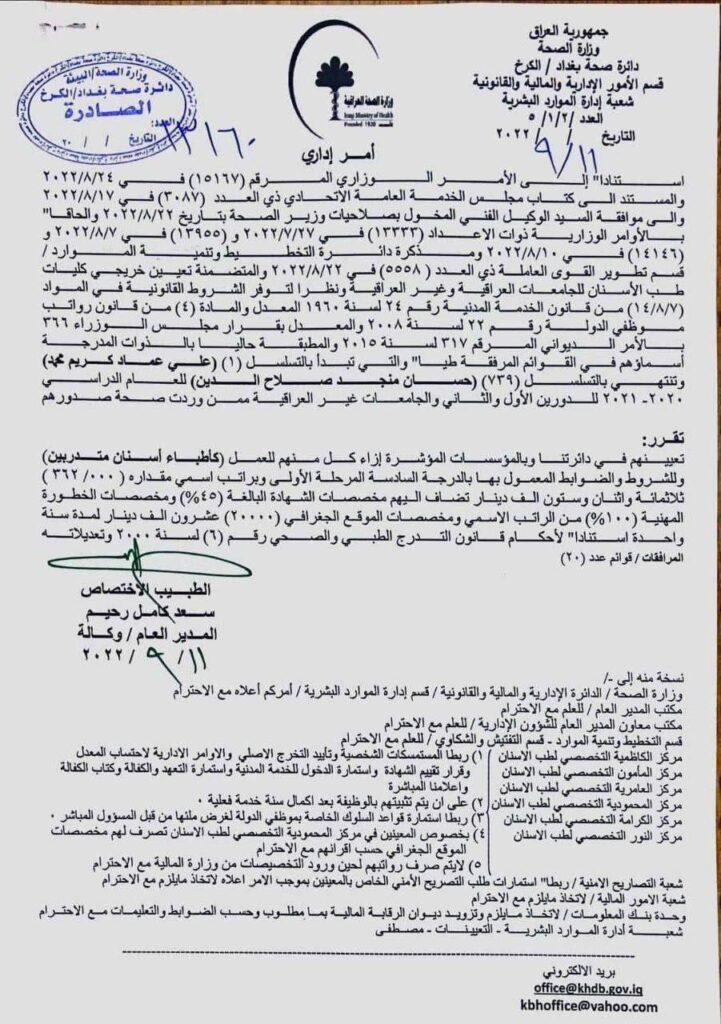 جمهورية العراق
وزارة الصحة
دائرة صحة بغداد / الكرخ
قسم الأمور الإدارية والمالية والقانونية
شعبة إدارة الموارد البشرية
العدد ٥/١/٢/
التاريخ ٩/١١ /٢٠٢٢
وزارة الصحة العراقية
Iraqi Ministry of Health
Founded 1920
وزارة الصحة/البيئة
دائرة صحة بغداد/الكرخ
الصادرة
العدد: ١٣١٦٠
التاريخ / / ٢٠
أمر إداري
استنادا" إلى الأمر الوزاري المرقم (١٥١٦٧) في ٢٠٢٢/٨/٢٤
والمستند الى كتاب مجلس الخدمة العامة الاتحادي ذي العدد (٣٠٨٧) في ٢٠٢٢/٨/١٧
والى موافقة السيد الوكيل الفني المخول بصلاحيات وزير الصحة بتاريخ ٢٠٢٢/٨/٢٢ والحاقا"
بالأوامر الوزارية ذوات الاعداد (١٣٣٣٣) في ٢٠٢٢/٧/٢٧ و (١٣٩٥٥) في ٢٠٢٢/٨/٧ و
(١٤١٤٦) في ٢٠٢٢/٨/١٠ ومذكرة دائرة التخطيط وتنمية الموارد /
قسم تطوير القوى العاملة ذي العدد (٥٥٥٨) في ٢٠٢٢/٨/٢٢ والمتضمنة تعيين خريجي كليات
طب الأسنان للجامعات العراقية وغير العراقية ونظرا لتوفر الشروط القانونية في المواد
(١٤/٨/٧) من قانون الخدمة المدنية رقم ٢٤ لسنة ١٩٦٠ المعدل والمادة (٤) من قانون رواتب
موظفي الدولة رقم ٢٢ لسنة ٢٠٠٨ والمعدل بقرار مجلس الوزراء ٣٦٦
بالأمر الديواني المرقم ٣١٧ لسنة ٢٠١٥ والمطبقة حاليا بالذوات المدرجة
أسماؤهم في القوائم المرفقة طيا" والتي تبدا بالتسلسل (١) (علي عماد كريم محمد)
وتنتهي بالتسلسل (٧٣٩) (حسان منجد صلاح الدين) للعام الدراسي
٢٠٢٠- ٢٠٢١ للدورين الأول والثاني والجامعات غير العراقية ممن وردت صحة صدورهم
تقرر:
تعيينهم في دائرتنا وبالمؤسسات المؤشرة إزاء كل منهم للعمل (كاطباء أسنان متدربين)
وللشروط والضوابط المعمول بها بالدرجة السادسة المرحلة الأولى وبراتب اسمي مقداره (٣٦٢/٠٠٠ )
ثلاثمائة واثنان وستون الف دينار تضاف اليهم مخصصات الشهادة البالغة (٤٥%) ومخصصات الخطورة
المهنية (١٠٠%) من الراتب الاسمي ومخصصات الموقع الجغرافي (٢٠٠٠٠) عشرون الف دينار لمدة سنة
واحدة استنادا" لأحكام قانون التدرج الطبي والصحي رقم (٦) لسنة ٢٠٠٠ وتعديلاته
المرافقات / قوائم عدد (٢٠)
الطبيب الاختصاص
سعد كامل رحيم
المدير العام / وكالة
١١/ ٩ / ٢٠٢٢
نسخة منه إلى -/
وزارة الصحة / الدائرة الإدارية والمالية والقانونية / قسم إدارة الموارد البشرية / أمركم أعلاه مع الاحترام
مكتب المدير العام / للعلم مع الاحترام
مكتب معاون المدير العام للشؤون الإدارية / للعلم مع الاحترام
قسم التخطيط وتنمية الموارد - قسم التفتيش والشكاوي / للعلم مع الاحترام
مركز الكاظمية التخصصي لطب الاسنان
مركز المأمون التخصصي لطب الاسنان
مركز العامرية التخصصي لطب الاسنان
مركز المحمودية التخصصي لطب الاسنان
مركز الكرامة التخصصي لطب الاسنان
مركز النور التخصصي لطب الاسنان
١) ربطا المستمسكات الشخصية وتأييد التخرج الاصلي والاوامر الادارية لاحتساب المعدل
وقرار تقييم الشهادة واستمارة الدخول للخدمة المدنية واستمارة التعهد والكفالة وكتاب الكفالة
واعلامنا المباشرة
٢) على ان يتم تثبيتهم بالوظيفة بعد اكمال سنة خدمة فعلية ٠
٣) ربطا استمارة قواعد السلوك الخاصة بموظفي الدولة لغرض ملئها من قبل المسؤول المباشر ٠
٤) بخصوص المعينين في مركز المحمودية التخصصي لطب الاسنان تصرف لهم مخصصات
الموقع الجغرافي حسب اقرانهم مع الاحترام
٥) لايتم صرف رواتبهم لحين ورود التخصيصات من وزارة المالية مع الاحترام
شعبة التصاريح الامنية / ربطا" استمارات طلب التصريح الأمني الخاص بالمعينين بموجب الامر اعلاه لاتخاذ مايلزم مع الاحترام
شعبة الامور المالية / لاتخاذ مايلزم مع الاحترام
وحدة بنك المعلومات / لاتخاذ مايلزم وتزويد ديوان الرقابة المالية بما مطلوب وحسب الضوابط والتعليمات مع الاحترام
شعبة أدارة الموارد البشرية - التعيينات - مصطفى
بريد الالكتروني
office@khdb.gov.iq
kbhoffice@yahoo.com